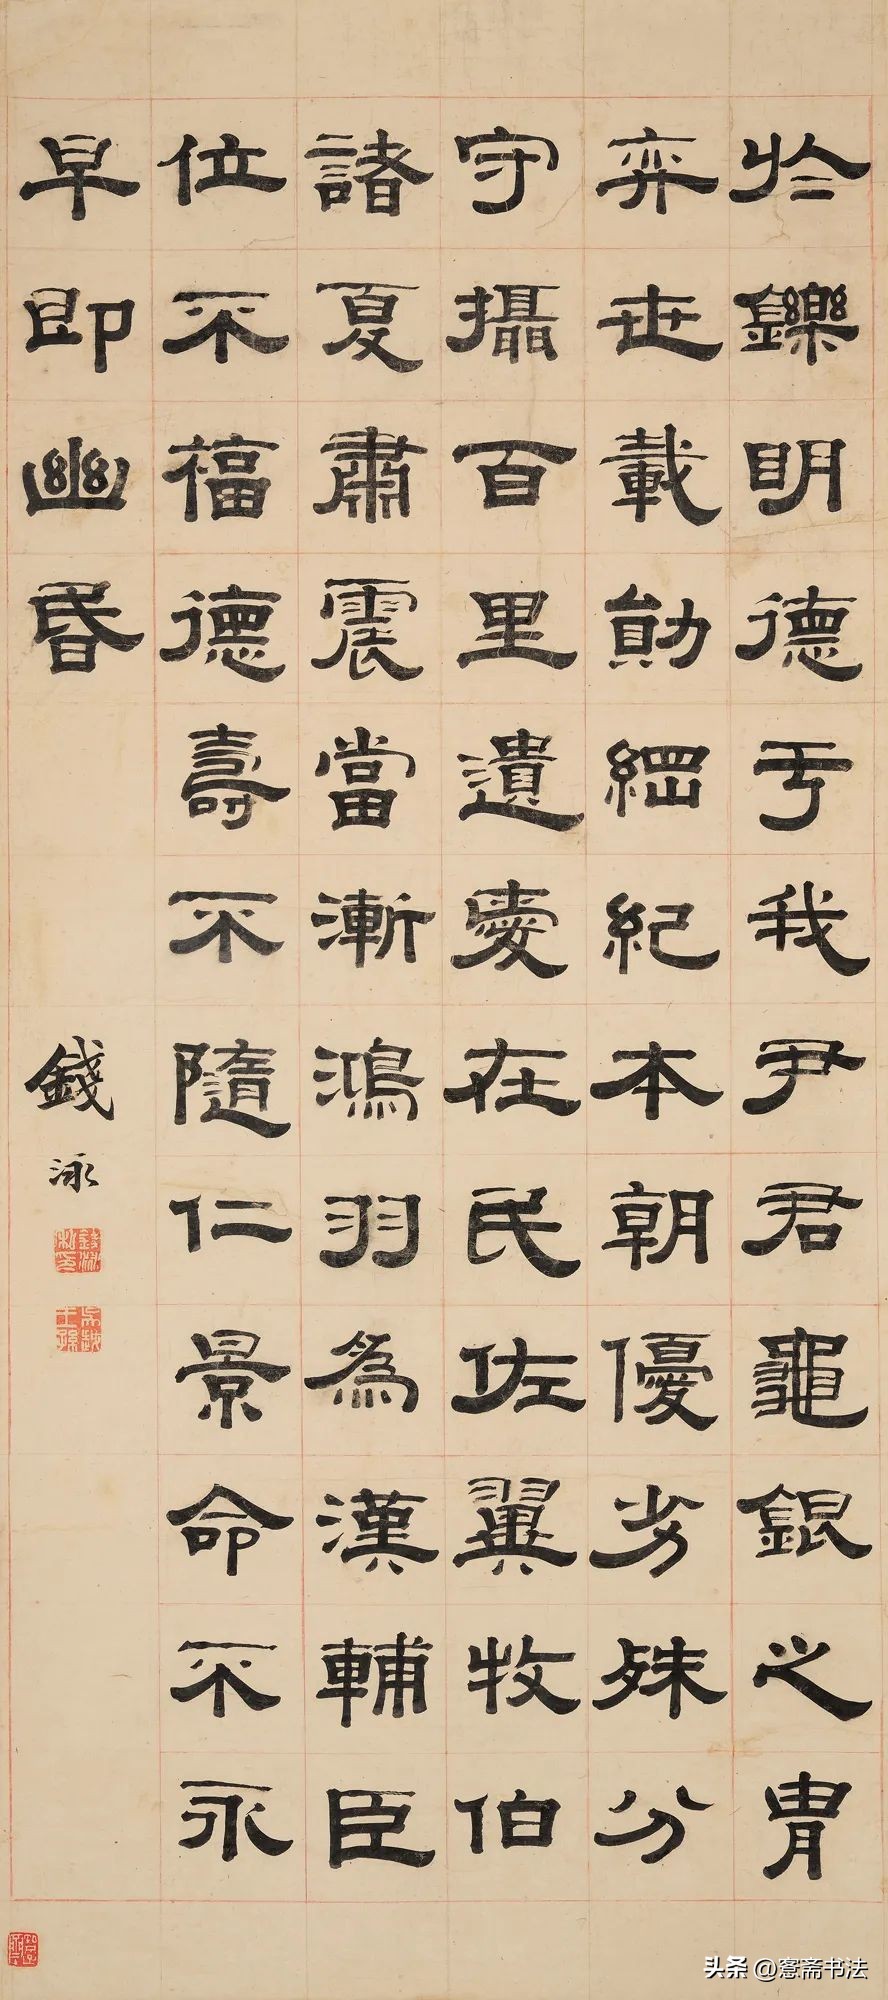 於鑠明德于我尹君龜銀之胄
弈世載勛綱紀本朝優劣殊分
守攝百里遺愛在民佐翼牧伯
諸夏肅震當漸鴻羽為漢輔臣
位不福德壽不隨仁景命不永
早即幽昏
錢泳
錢泳私印
吳越王孫
头条 @窓斋书法